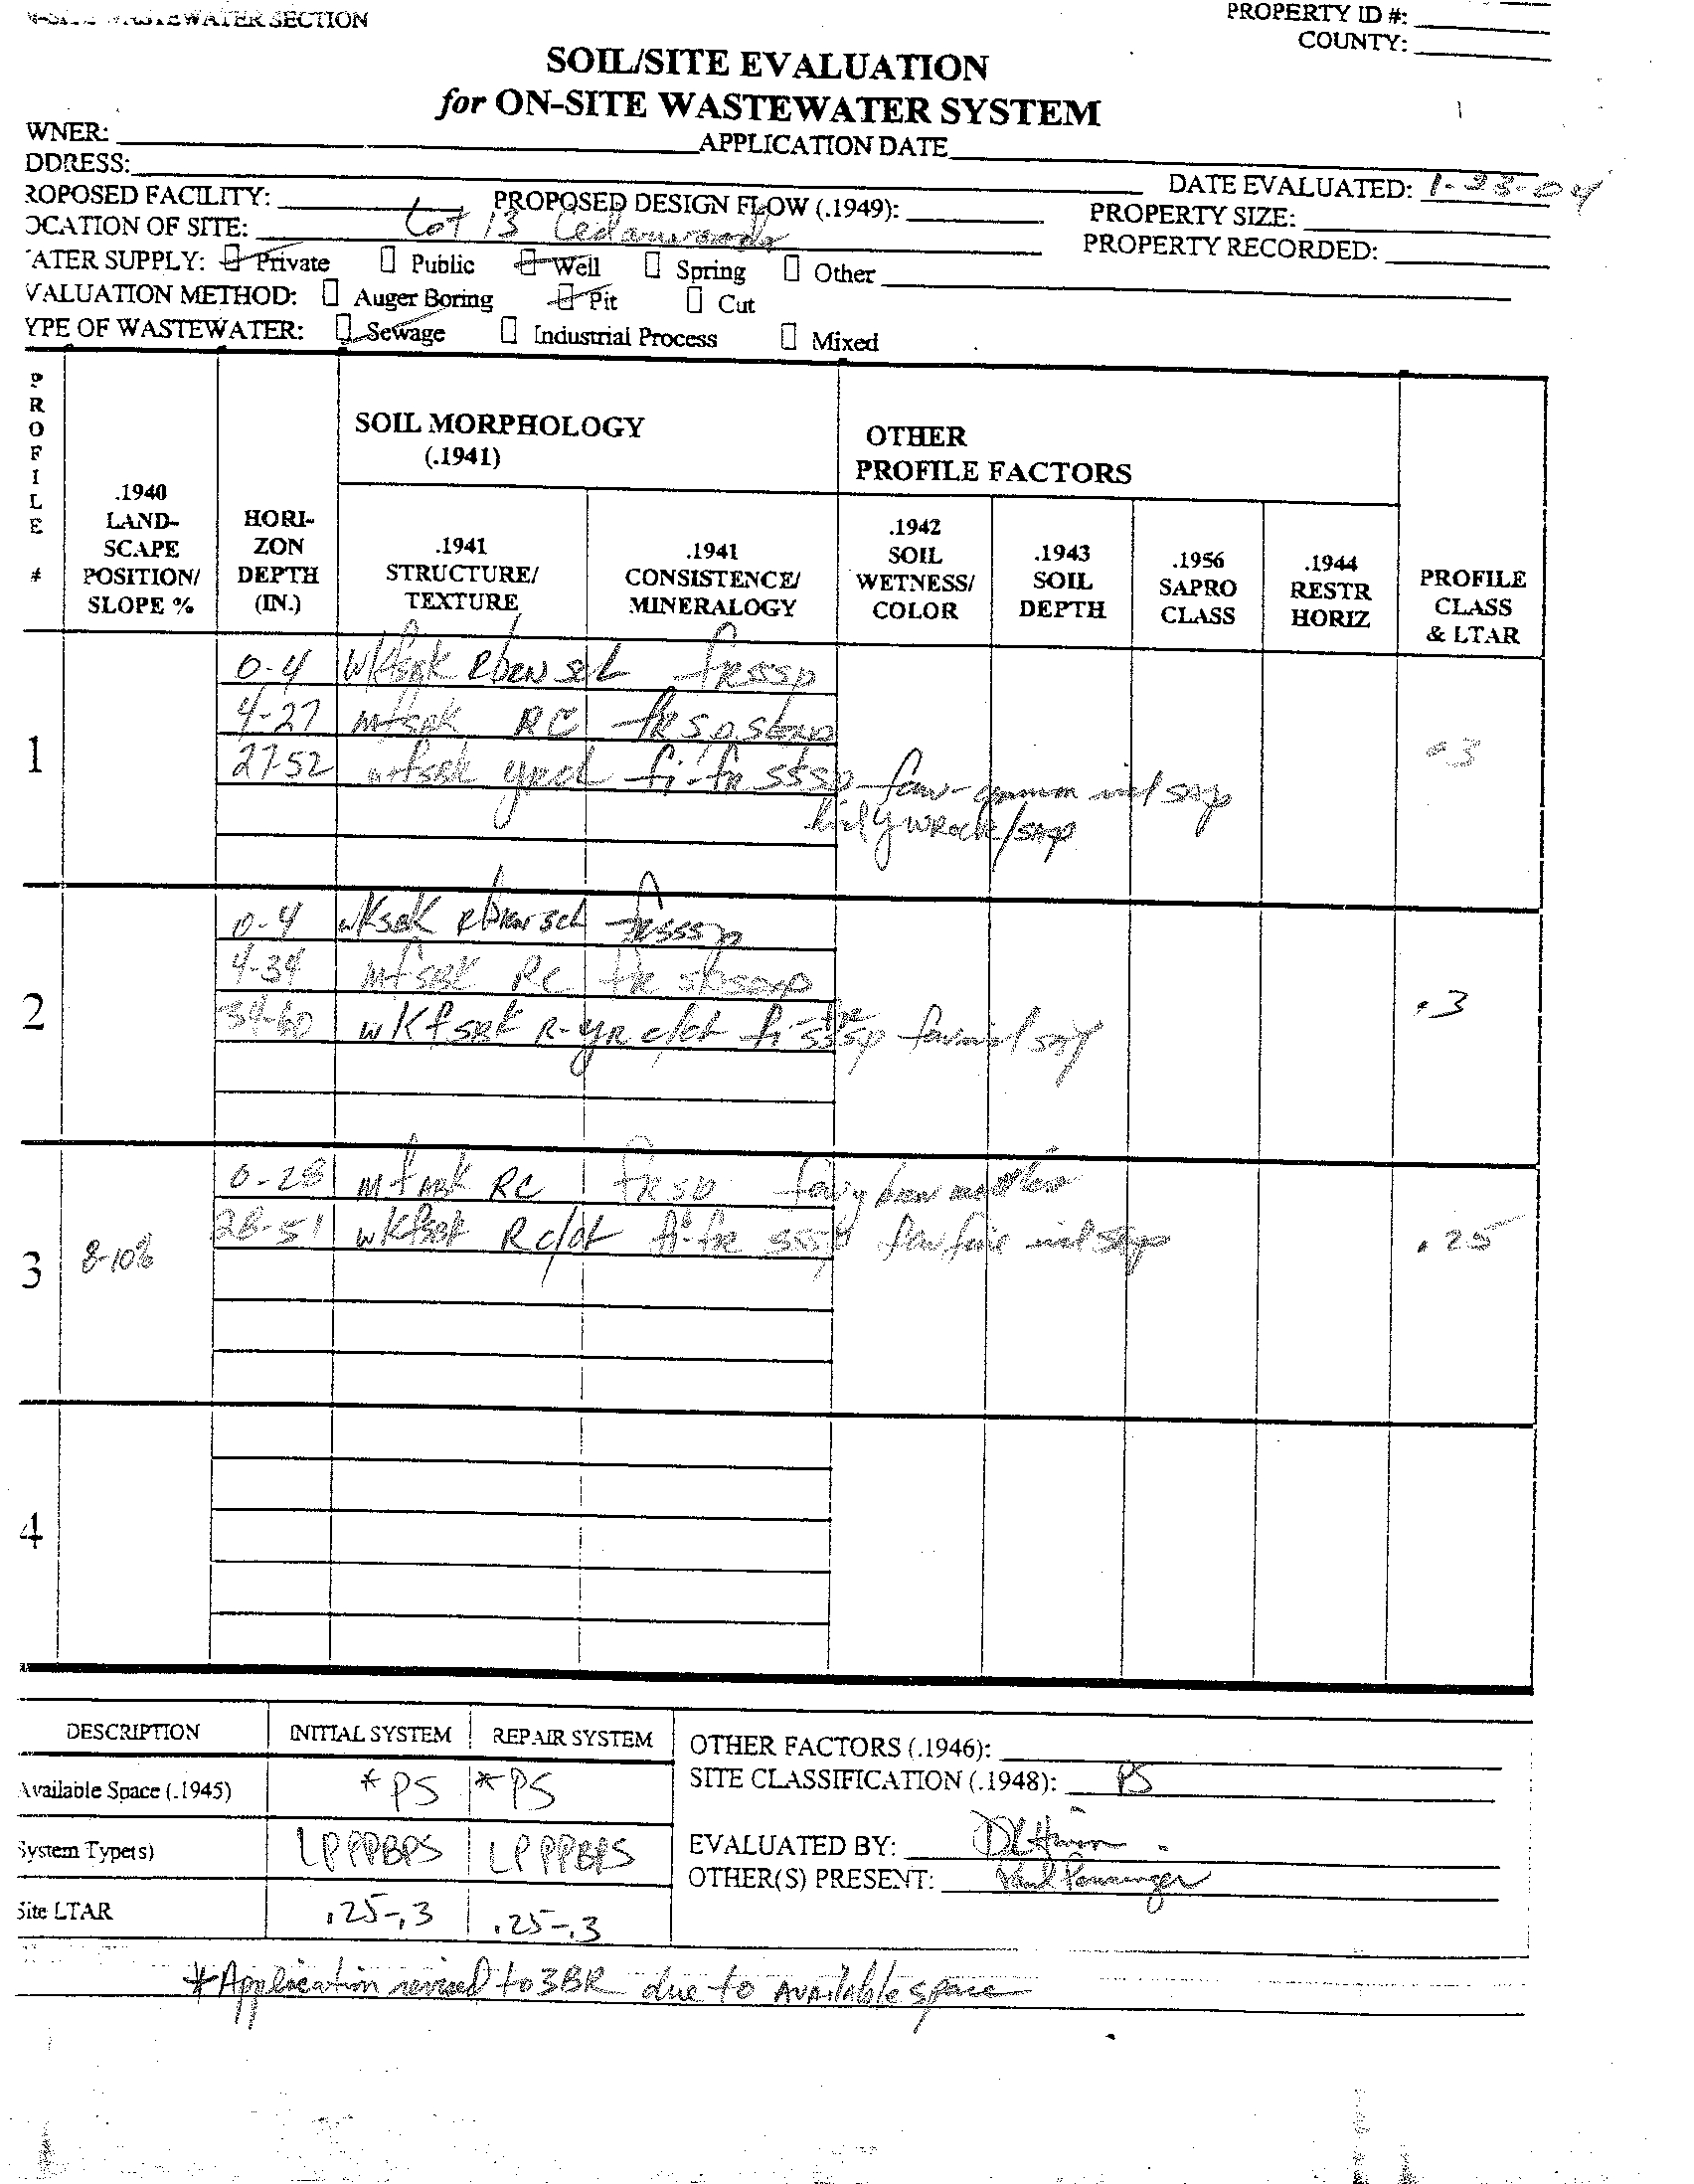 WASTEWATER SECTION
PROPERTY ID #:
COUNTY:
SOIL/SITE EVALUATION
for ON-SITE WASTEWATER SYSTEM
WNER:
APPLICATION DATE
DDRESS:
DATE EVALUATED: 1-23-04
ROPOSED FACILITY: PROPOSED DESIGN FLOW (.1949): PROPERTY SIZE:
OCATION OF SITE: Lot 13 Cedarwoods PROPERTY RECORDED:
ATER SUPPLY: Private Public Well Spring Other
VALUATION METHOD: Auger Boring Pit Cut
YPE OF WASTEWATER: Sewage Industrial Process Mixed
PROFILE #
.1940 LAND-SCAPE POSITION/ SLOPE %
HORI-ZON DEPTH (IN.)
SOIL MORPHOLOGY (.1941)
.1941 STRUCTURE/ TEXTURE
.1941 CONSISTENCE/ MINERALOGY
OTHER PROFILE FACTORS
.1942 SOIL WETNESS/ COLOR
.1943 SOIL DEPTH
.1956 SAPRO CLASS
.1944 RESTR HORIZ
PROFILE CLASS & LTAR
1
0-4 wkfsbk
4-27 mfsbk RC
27-52 mfsbk fi-fr sssp
.3
2
0-4 wksbk
4-34 mfsbk RC
34-60 wkfsbk R-YR c/cl
.3
3 8-10%
0-28 RC frsp
28-51 wkfsbk R c/cl fi-fr sssp few fine
.25
4
DESCRIPTION INITIAL SYSTEM REPAIR SYSTEM
Available Space (.1945) *PS *PS
System Type(s) LPPPBPS LPPPBPS
Site LTAR .25-.3 .25-.3
OTHER FACTORS (.1946):
SITE CLASSIFICATION (.1948): PS
EVALUATED BY:
OTHER(S) PRESENT:
*Application revised to 3BR due to Available space